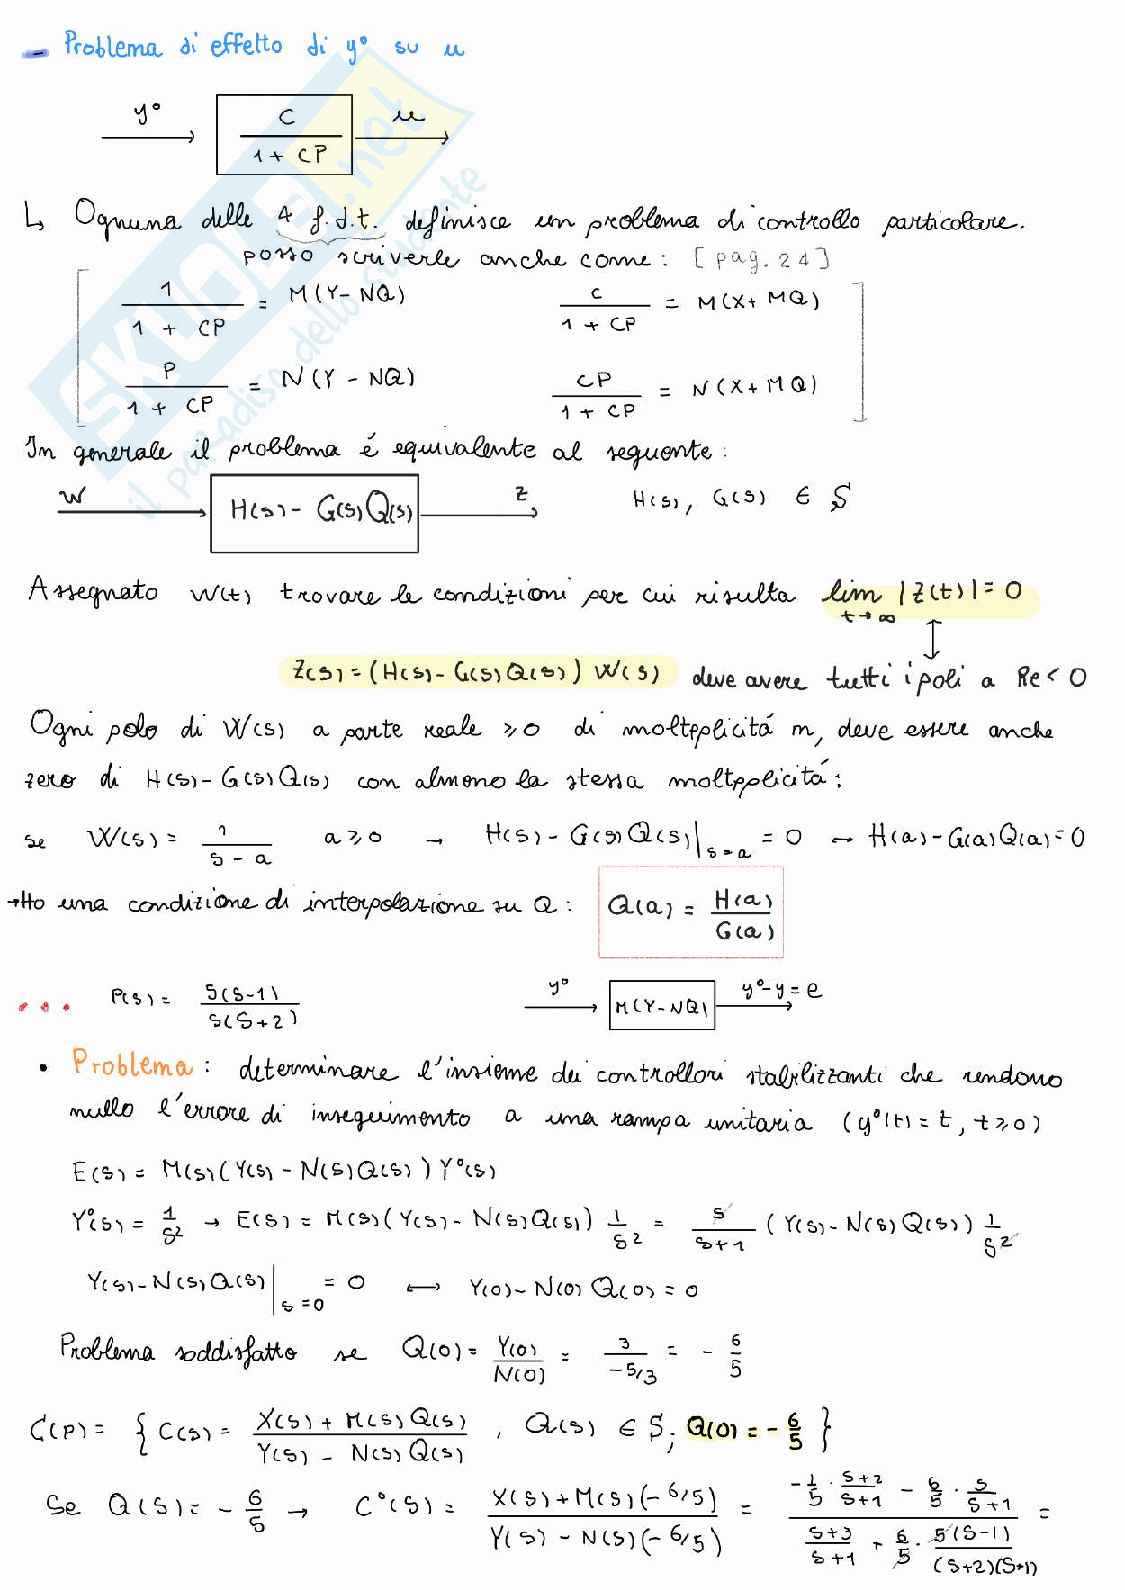 - Problema di effetto di y° su u
y° C / 1 + CP u
↳ Ognuna delle 4 f.d.t. definisce un problema di controllo particolare.
posso scriverle anche come: [pag. 24]
1 / 1 + CP = M(Y-NQ)   C / 1 + CP = M(X+MQ)
P / 1 + CP = N(Y - NQ)   CP / 1 + CP = N(X+MQ)
In generale il problema é equivalente al seguente:
W H(s) - G(s)Q(s) z   H(s), G(s) ∈ S
Assegnato W(t) trovare le condizioni per cui risulta lim t→∞ |Z(t)| = 0
Z(s) = (H(s) - G(s)Q(s)) W(s) deve avere tutti i poli a Re < 0
Ogni polo di W(s) a parte reale ≥ 0 di molteplicitá m, deve essere anche
zero di H(s) - G(s)Q(s) con almeno la stessa molteplicitá:
se W(s) = 1 / s - a   a ≥ 0 → H(s) - G(s)Q(s)|s=a = 0 → H(a) - G(a)Q(a) = 0
→ Ho una condizione di interpolazione su Q: Q(a) = H(a) / G(a)
... P(s) = 5(s-1) / s(s+2)   y° M(Y-NQ) y°-y = e
• Problema: determinare l'insieme dei controllori stabilizzanti che rendono
nullo l'errore di inseguimento a una rampa unitaria (y°(t) = t, t ≥ 0)
E(s) = M(s)(Y(s) - N(s)Q(s)) Y°(s)
Y°(s) = 1 / s² → E(s) = M(s)(Y(s) - N(s)Q(s)) 1 / s² = s / s+1 (Y(s) - N(s)Q(s)) 1 / s²
Y(s) - N(s)Q(s)|s=0 = 0 ⟷ Y(0) - N(0)Q(0) = 0
Problema soddisfatto se Q(0) = Y(0) / N(0) = 3 / -5/3 = - 6 / 5
C(P) = { C(s) = X(s) + M(s)Q(s) / Y(s) - N(s)Q(s) , Q(s) ∈ S; Q(0) = - 6/5 }
Se Q(s) = - 6/5 → C°(s) = X(s) + M(s)(-6/5) / Y(s) - N(s)(-6/5) = -1/5 · s+2 / s+1 - 6/5 · s / s+1 / s+3 / s+1 + 6/5 · 5(s-1) / (s+2)(s+1) =
SKUOLA.net
il paradiso dello studente